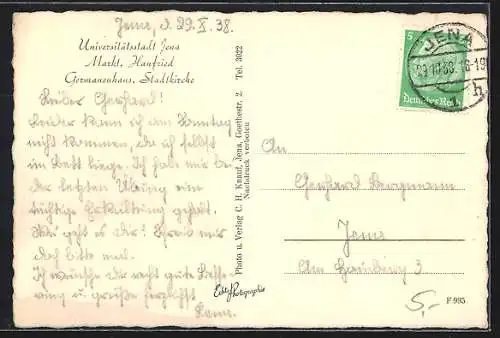 Jena, d. 29.X.38.
Universitätsstadt Jena
Markt, Hanfried
Germanenhaus, Stadtkirche
Lieber Gerhard!
Leider kann ich am Sonntag
nicht kommen, da ich selbst
im Bett liege. Ich hab mir bei
der letzten Übung eine
richtige Erkältung geholt.
Wie geht es dir? Schreib mir
doch bitte mal.
Ich wünsche dir recht gute Besse-
rung u. grüße herzlichst
Photo u. Verlag C. H. Knauf, Jena, Goethestr. 2 Tel. 3022
Nachdruck verboten
Echte Photographie
5
Deutsches Reich
JENA
29.10.38. 18-19
h
An
Gerhard Bergmann
Jena
Am
3
5,-
F 995